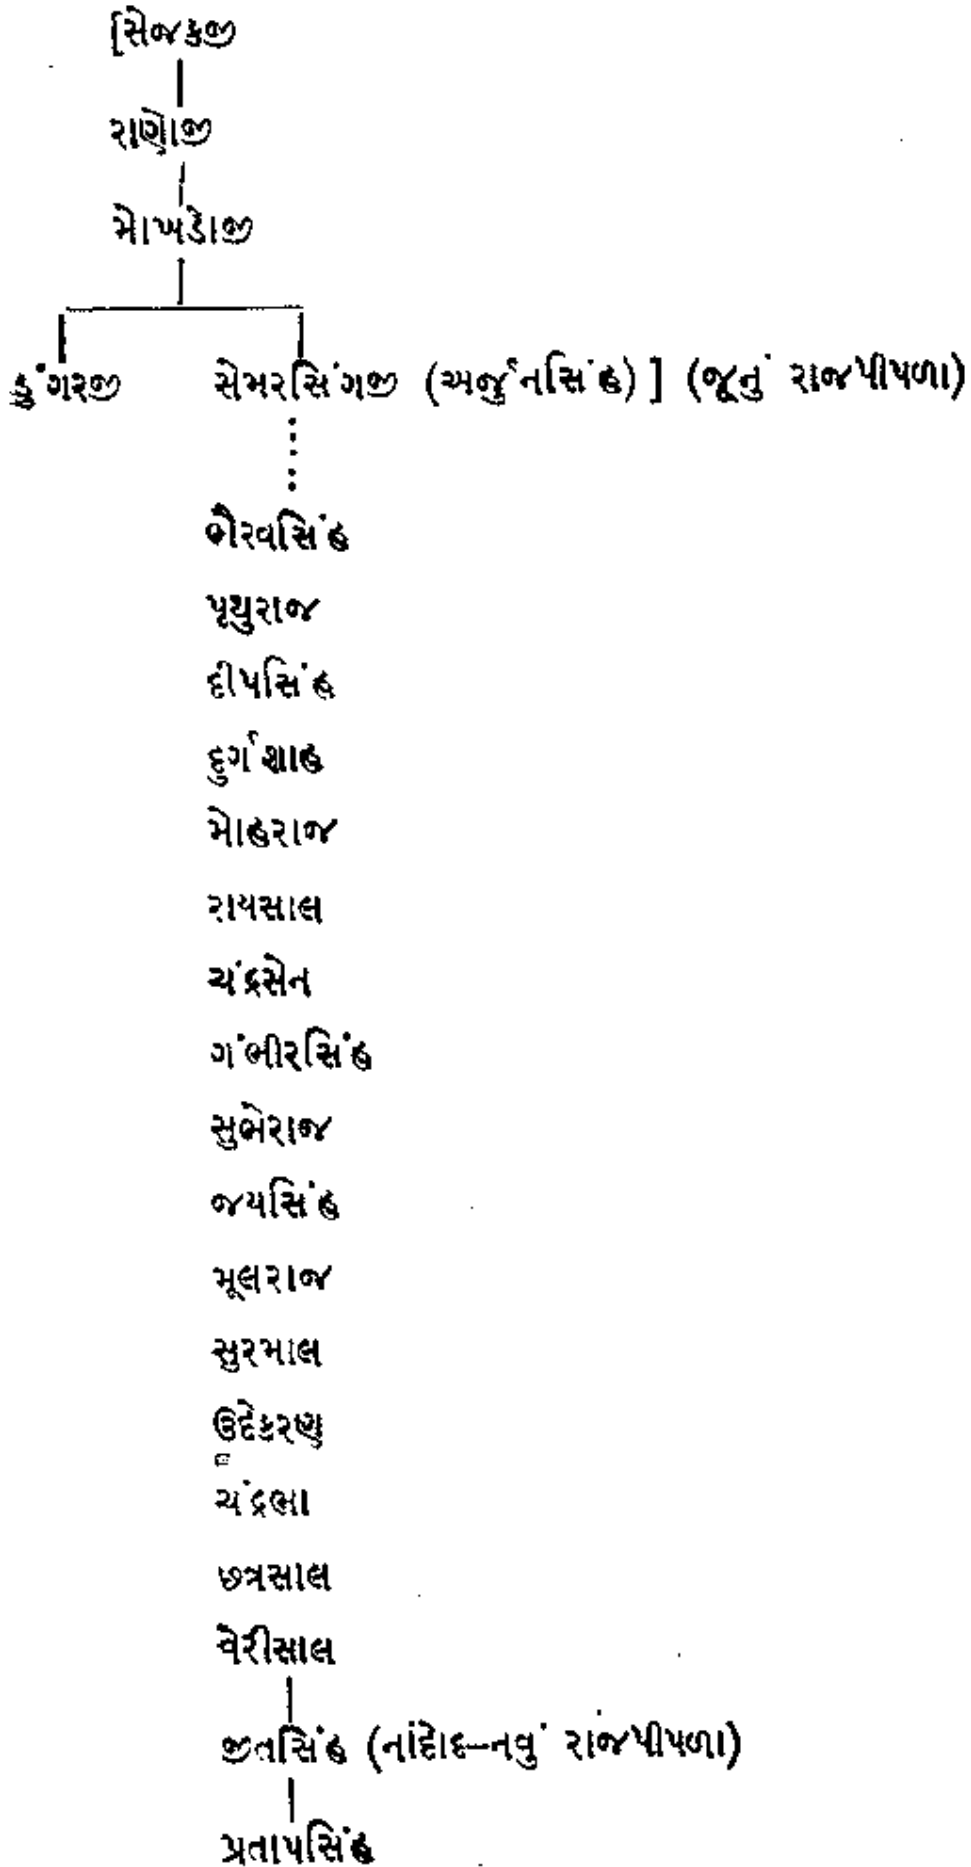 [સેજકજી
રાણોજી
મોખડોજી
ડુંગરજી સેમરસિંગજી (અર્જુનસિંહ) ] (જૂનું રાજપીપળા)
ભૈરવસિંહ
પૃથુરાજ
દીપસિંહ
દુર્ગશાહ
મોહરાજ
રાયસાલ
ચંદ્રસેન
ગંભીરસિંહ
સુભેરાજ
જયસિંહ
મૂલરાજ
સુરમાલ
ઉદેકરણ
ચંદ્રભા
છત્રસાલ
વેરીસાલ
જીતસિંહ (નાંદોદ–નવું રાજપીપળા)
પ્રતાપસિંહ